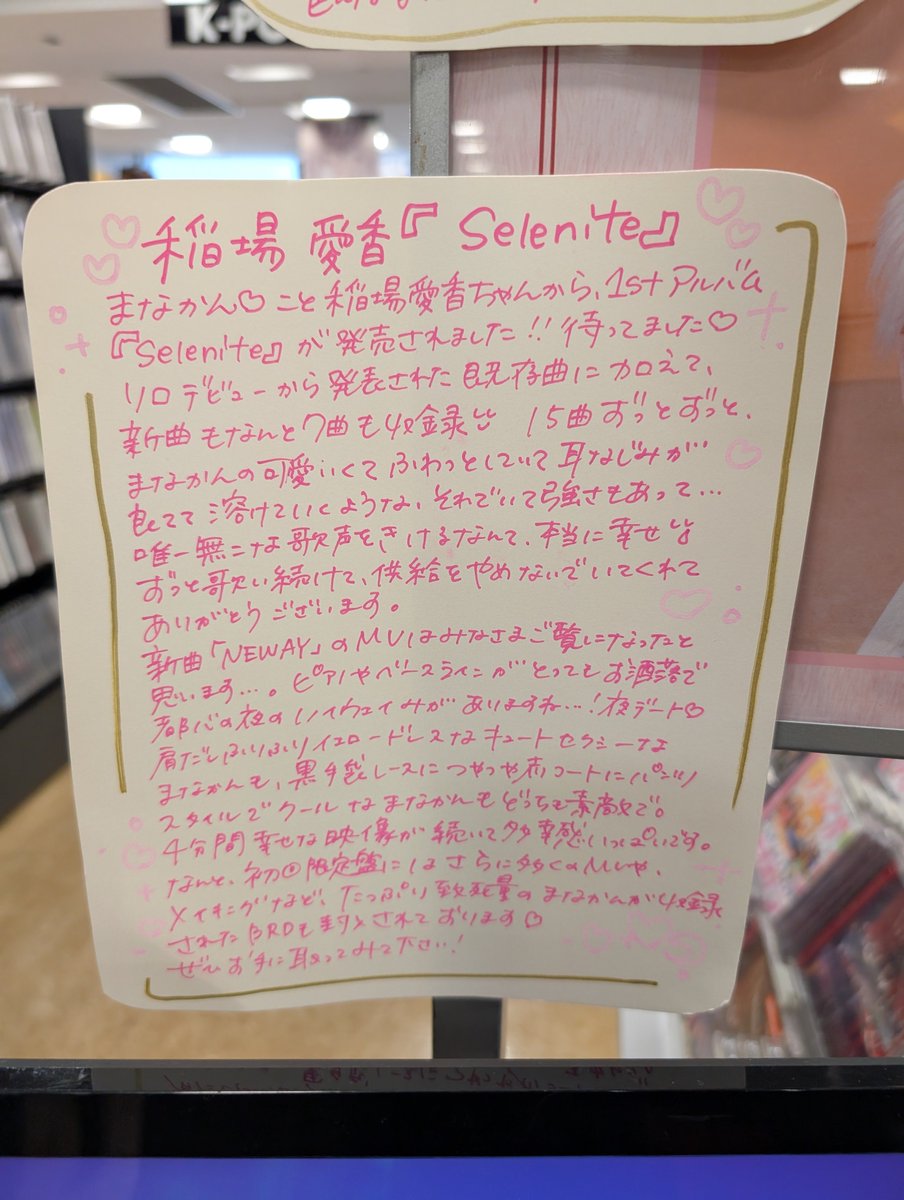 K-PO
稲場 愛香『Selenite』
まなかん♡こと稲場愛香ちゃんから、1stアルバム
『Selenite』が発売されました!!待ってました♡
ソロデビューから発表された既存曲に加えて、
新曲もなんと7曲も収録 15曲ずっとずっと、
まなかんの可愛いくてふわっとしていて耳なじみが
良くて溶けていくような、それでいて強さもあって…
唯一無二な歌声をきけるなんて、本当に幸せ
ずっと歌い続けて、供給をやめないでいてくれて
ありがとうございます。
新曲「NEWAY」のMVはみなさまご覧になったと
思います…。ピアノやベースラインがとってもお洒落で
都心の夜のハイウェイみがありますね…!夜デート♡
肩だしふりふりイエロードレスなキュートセクシーな
まなかんも、黒手袋レースにつやつや赤コートにパンツ
スタイルでクールなまなかんもどっちも素敵で。
4分間幸せな映像が続いて多幸感いっぱいです。
なんと、初回限定盤にはさらに多くのMVや、
メイキングなど、たっぷり致死量のまなかんが収録
されたBRDも封入されております♡
ぜひお手に取ってみて下さい!